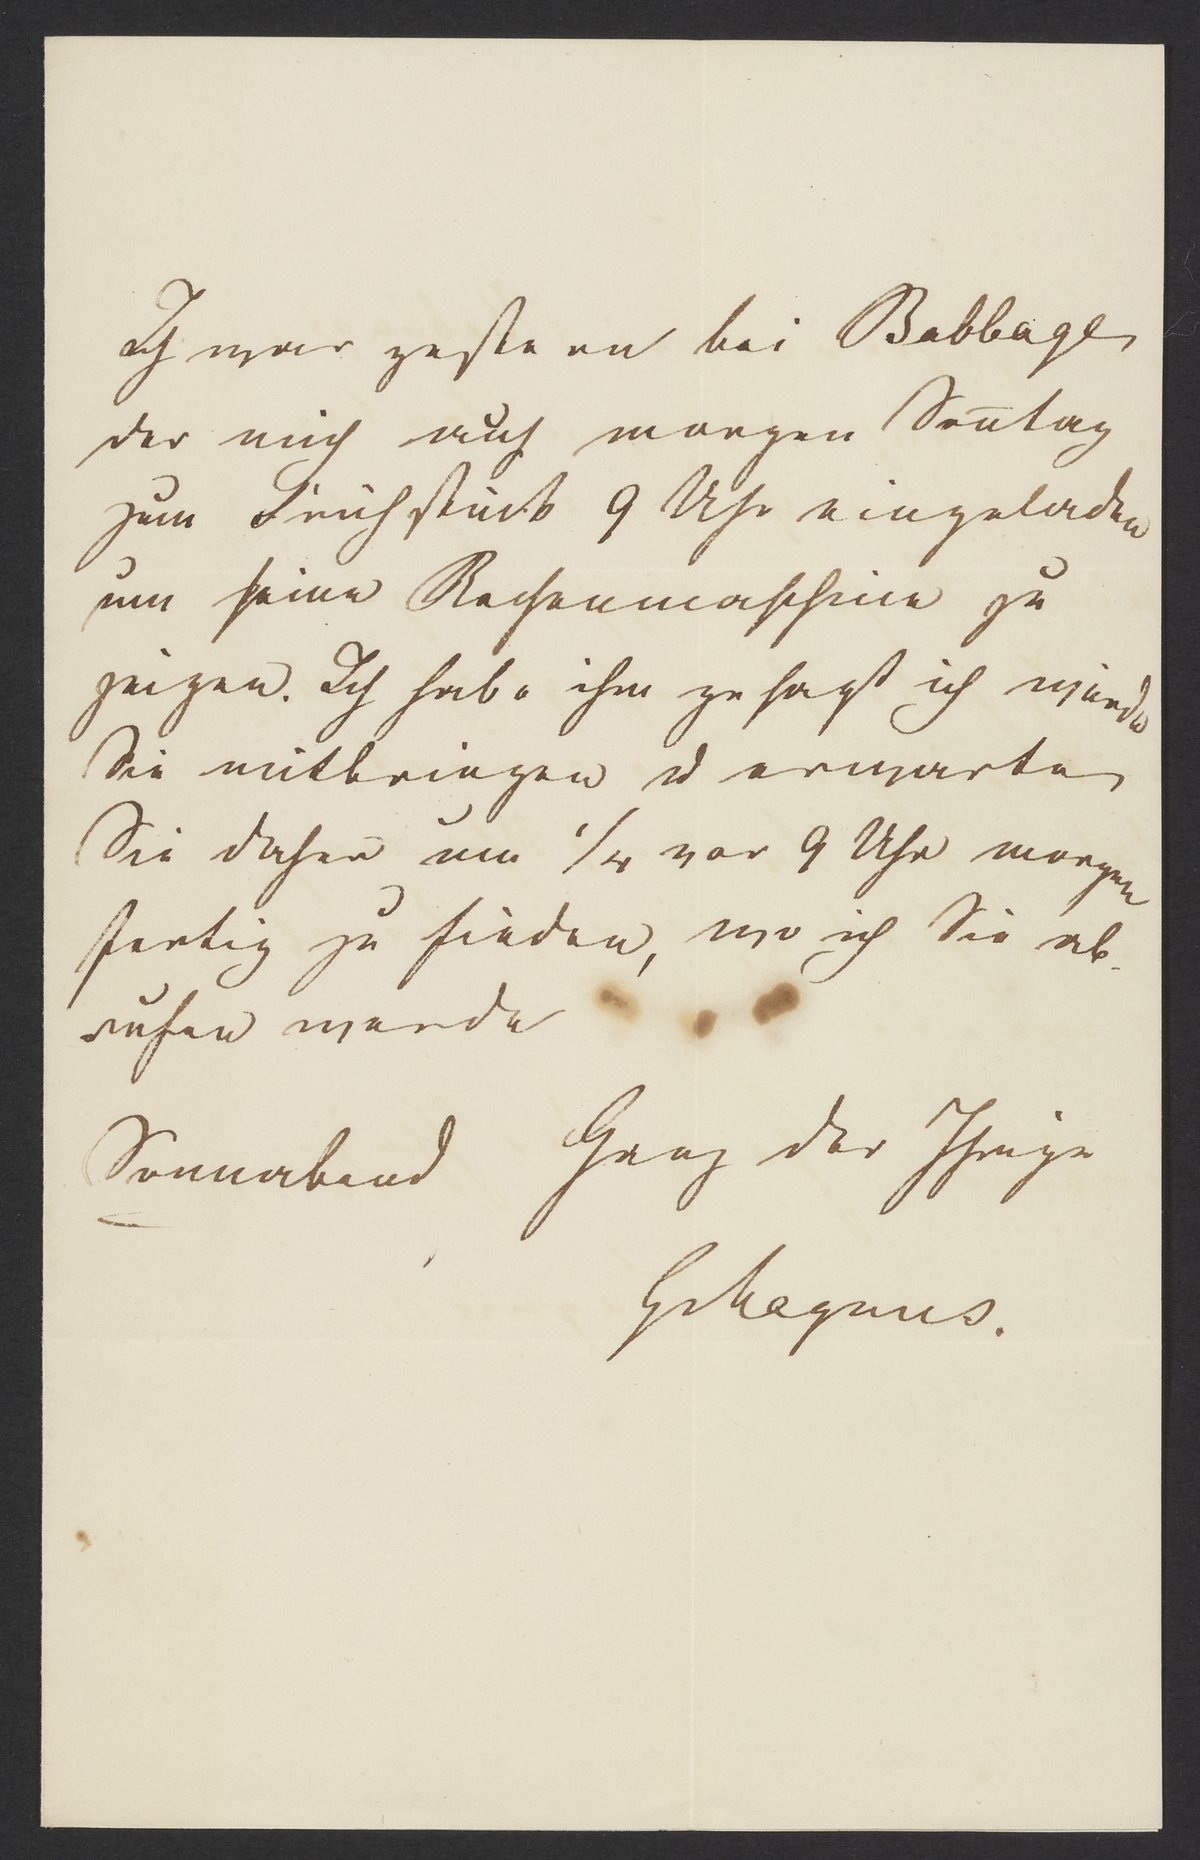 Ich war gestern bei Babbage
der mich auf morgen Son̅tag
zum Frühstück 9 Uhr eingeladen
um seine Rechenmaschine zu
zeigen. Ich habe ihm gesagt ich würde
Sie mitbringen u erwarte
Sie daher um 1/4 vor 9 Uhr morgen
fertig zu finden, wo ich Sie ab-
rufen werde
Sonnabend Ganz der Ihrige
G Magnus.